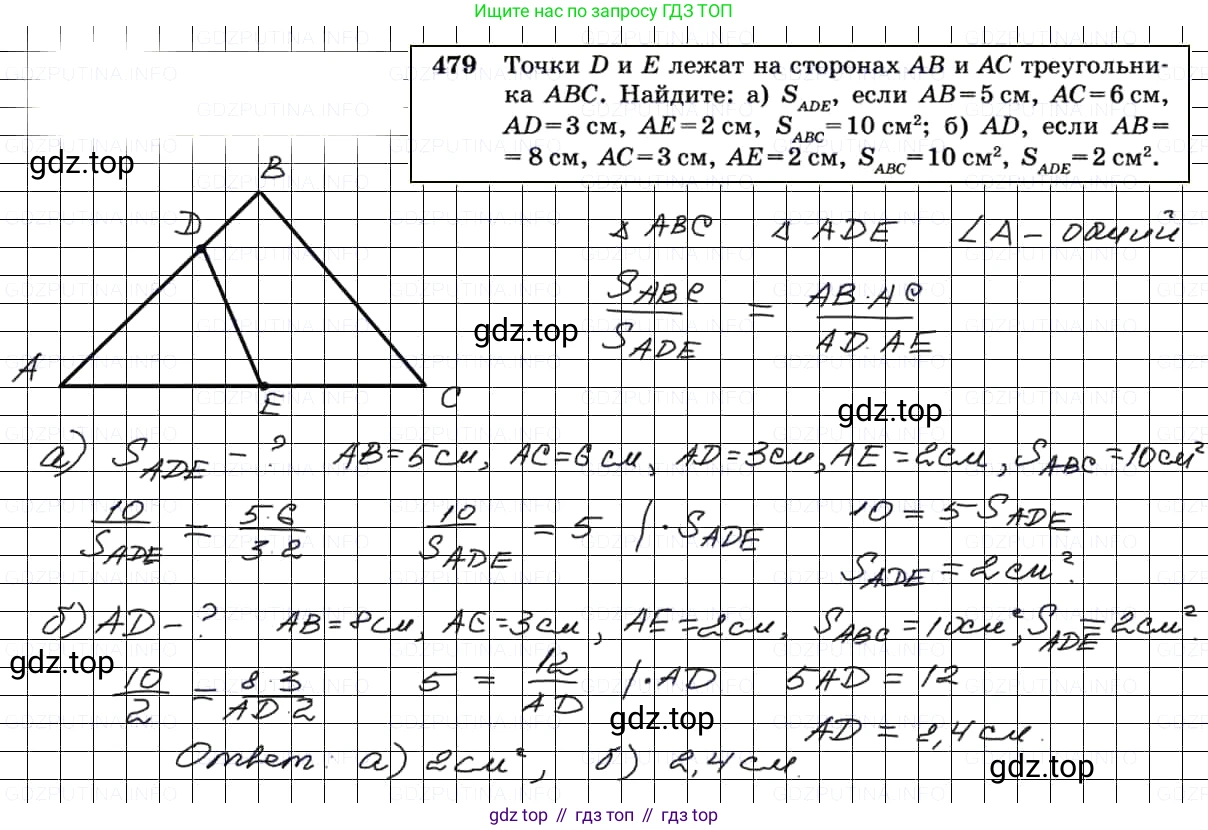 Ищите нас по запросу ГДЗ ТОП
479 Точки D и E лежат на сторонах AB и AC треугольни-
ка ABC. Найдите: а) S_ADE, если AB=5 см, AC=6 см,
AD=3 см, AE=2 см, S_ABC=10 см²; б) AD, если AB=
=8 см, AC=3 см, AE=2 см, S_ABC=10 см², S_ADE=2 см².
gdz.top
B
D
A
E
C
△ ABC △ ADE ∠A – общий
S_ABC / S_ADE = AB·AC / AD·AE
gdz.top
gdz.top
а) S_ADE – ? AB=5см, AC=6см, AD=3см, AE=2см, S_ABC=10см²
10/S_ADE = 5·6/3·2 10/S_ADE = 5 |·S_ADE 10=5·S_ADE
S_ADE=2см².
б) AD – ? AB=8см, AC=3см, AE=2см, S_ABC=10см², S_ADE=2см².
gdz.top
10/2 = 8·3/AD·2 5 = 12/AD |·AD 5AD = 12
gdz.top
AD = 2,4см.
Ответ: а) 2см², б) 2,4см.
gdz.top
gdz top // гдз топ // gdz top
GDZPUTINA.INFO